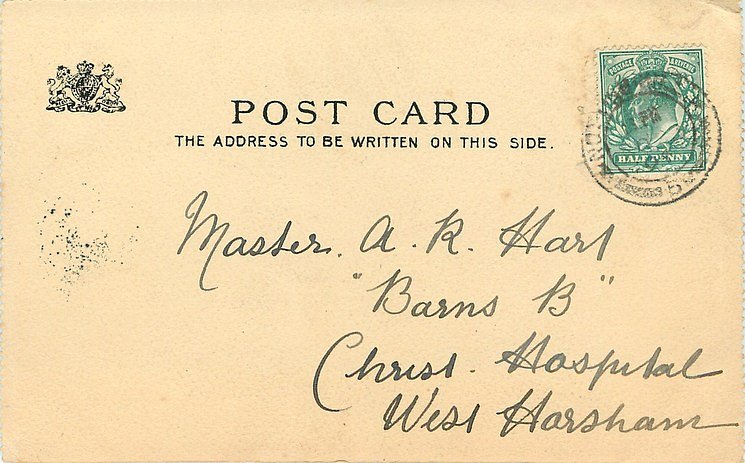 POST CARD
THE ADDRESS TO BE WRITTEN ON THIS SIDE.
POSTAGE & REVENUE
HALF PENNY
Master. A. R. Hart
"Barns B"
Christ. Hospital
West Horsham